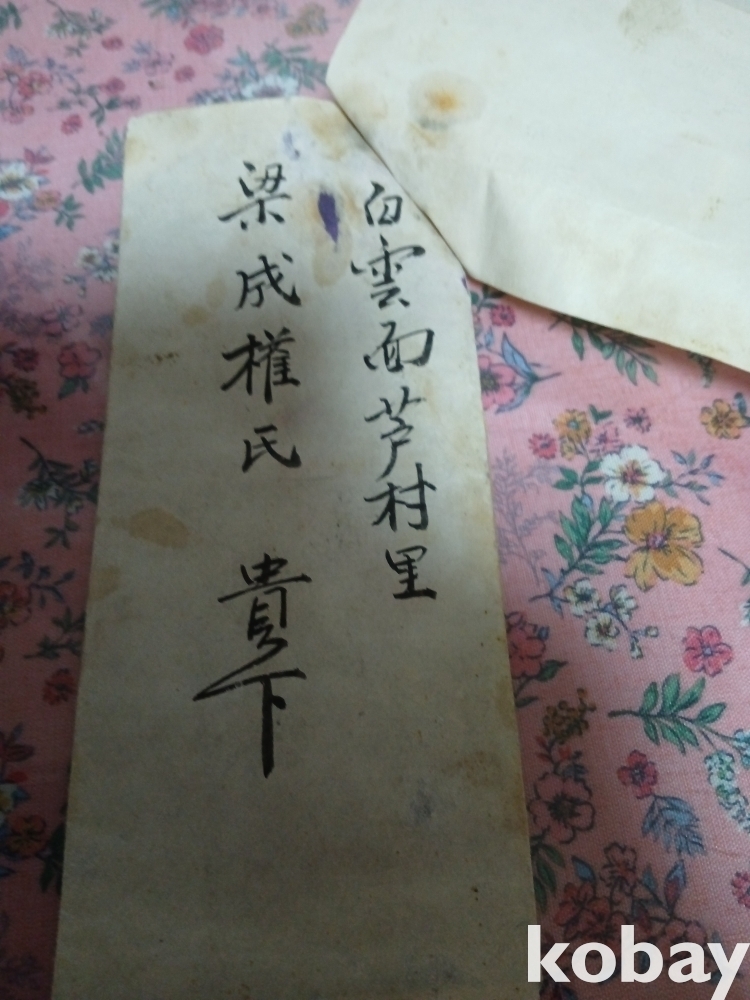 白雲面芦村里
梁成權氏 貴下
kobay